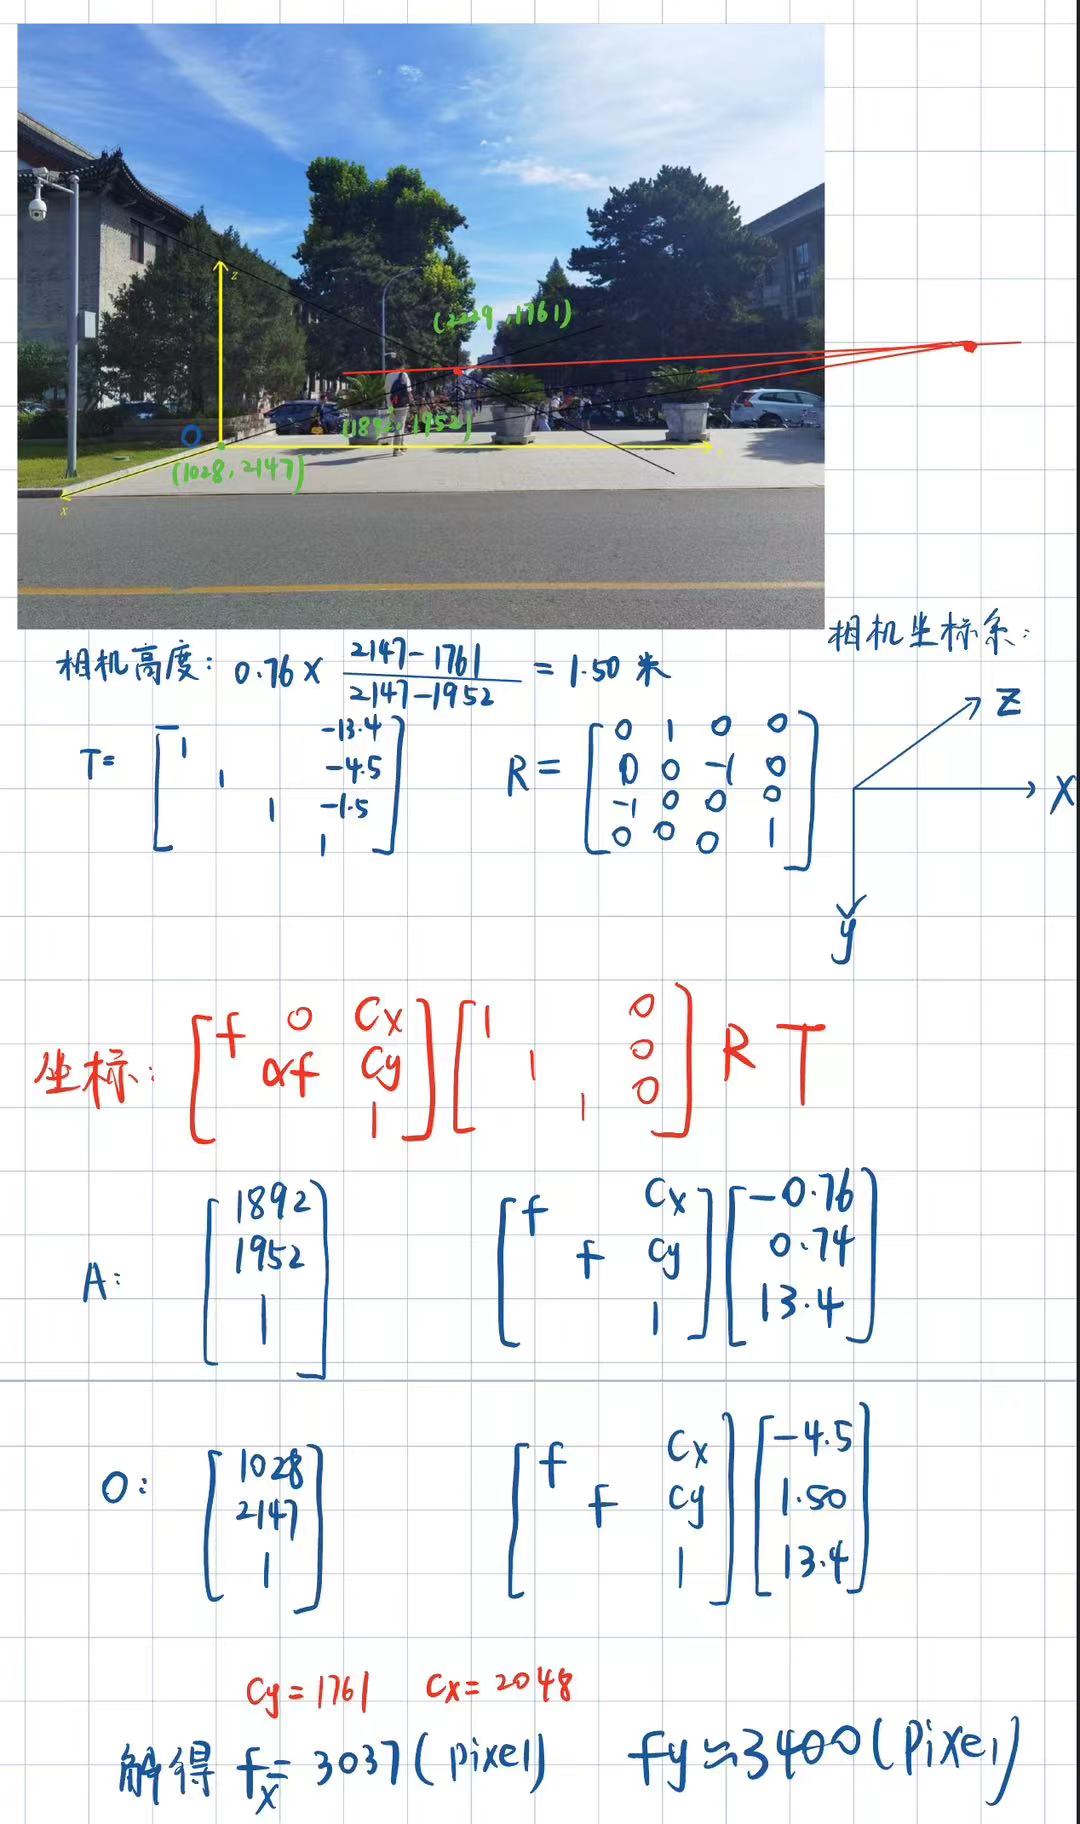 z
(2229,1761)
(1892,1952)
O
(1028,2147)
x
相机坐标系:
相机高度: 0.76 × (2147-1761)/(2147-1952) = 1.50 米
T= [1 -13.4
1 -4.5
1 -1.5
1]
R= [0 1 0 0
0 0 -1 0
-1 0 0 0
0 0 0 1]
Z
X
y
坐标: [f 0 Cx
αf Cy
1] [1 0
1 0
1 0] R T
A: [1892
1952
1]
[f Cx
f Cy
1] [-0.76
0.74
13.4]
O: [1028
2147
1]
[f Cx
f Cy
1] [-4.5
1.50
13.4]
Cy=1761 Cx=2048
解得 fx= 3037(pixel) fy≈3400(pixel)